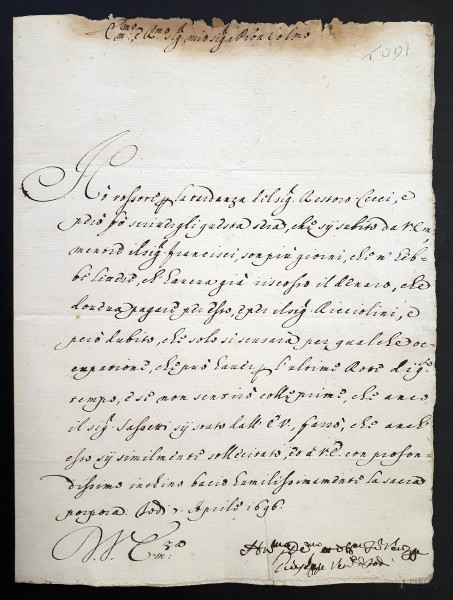 TODI
Em.mo e R.mo Sig.r mio Sig.re Pron Colmo
Hò rossore p la tardanza del sig. Restoro Cecci, e
perciò fò scrivergli questa sera, che sij subito da V. Em.
mentre il sig. Francisci, son più giorni, che n'heb-
be l'avviso, e haveva già riscosso il denaro, che
doveva pagare per esso, e per il sig. Ricciolini, e
però dubito, che solo si scusarà per qualche oc-
cupatione, che può havere p l'ultime Rote di q.o
tempo, e se non sentirò colle prime, che anco
il sig. Sassetti sij stato dall' E. V., farrò, che anch'
esso sij similmente sollecitato, et à V. E. con profon-
dissimo inchino bacio humilissimamente la sacra
porpora. Todi 7 Aprile 1696.
D. V. Em.za
Giuseppe Vesc. Todi